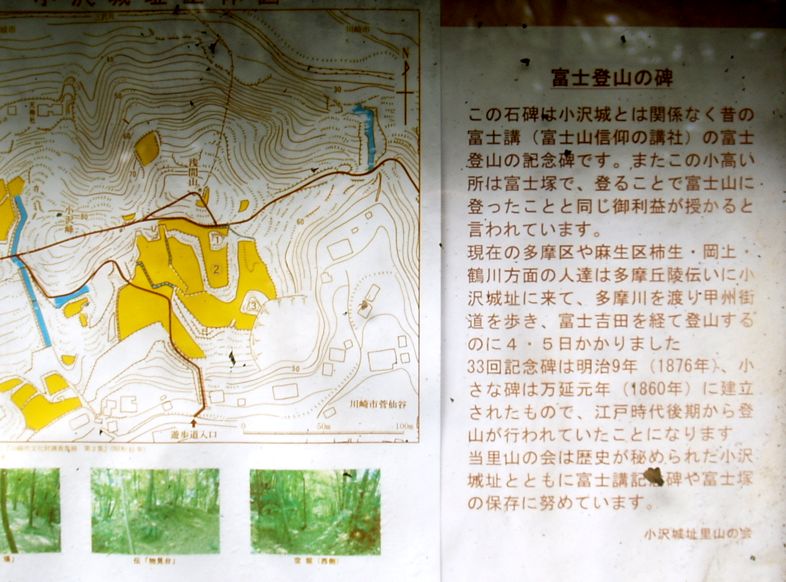 富士登山の碑
この石碑は小沢城とは関係なく昔の
富士講（富士山信仰の講社）の富士
登山の記念碑です。またこの小高い
所は富士塚で、登ることで富士山に
登ったことと同じ御利益が授かると
言われています。
現在の多摩区や麻生区柿生・岡上・
鶴川方面の人達は多摩丘陵伝いに小
沢城址に来て、多摩川を渡り甲州街
道を歩き、富士吉田を経て登山する
のに４・５日かかりました
33回記念碑は明治9年（1876年）、小
さな碑は万延元年（1860年）に建立
されたもので、江戸時代後期から登
山が行われていたことになります
当里山の会は歴史が秘められた小沢
城址とともに富士講記 碑や富士塚
の保存に努めています。
小沢城址里山の会
川崎市
N
浅間山
小沢峰
1
2
3
川崎市菅仙谷
遊歩道入口
0 50m 100m
伝「物見台」
空堀（西側）